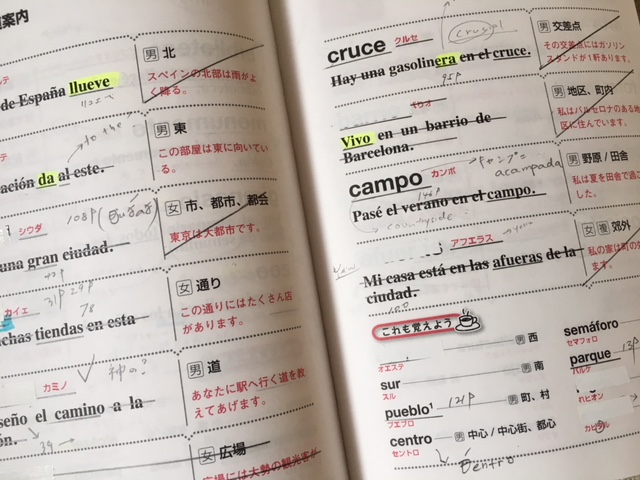 案内
男 北
スペインの北部は雨がよ
く降る。
de España llueve
to the
男 東
この部屋は東に向いてい
る。
ación da al este.
シウダ
108P
女 市、都市、都会
東京は大都市です。
una gran ciudad.
カイエ
31P
78
女 通り
この通りにはたくさん店
があります。
chas tiendas en esta
カミノ
神の?
男 道
あなたに駅へ行く道を教
えてあげます。
seño el camino a la
ón.
39
女 広場
広場には大勢の観光客が
cruce
クルセ
男 交差点
その交差点にはガソリン
スタンドが1軒あります。
Hay una gasolinera en el cruce.
95P
男 地区、町内
私はバルセロナのある地
区に住んでいます。
Vivo en un barrio de
Barcelona.
campo
カンポ
キャンプ=
acampada
男 野原/田舎
私は夏を田舎で過ご
した。
146P
Pasé el verano en el campo.
countryside
アフエラス
女 複 郊外
私の家は町の
ます。
Mi casa está en las afueras de la
ciudad.
これも覚えよう
オエステ
男 西
sur
スル
男 南
pueblo¹
プエブロ
121P
男 町、村
centro
セントロ
男 中心/中心街、都心
semáforo
セマフォロ
parque
パルケ
13P